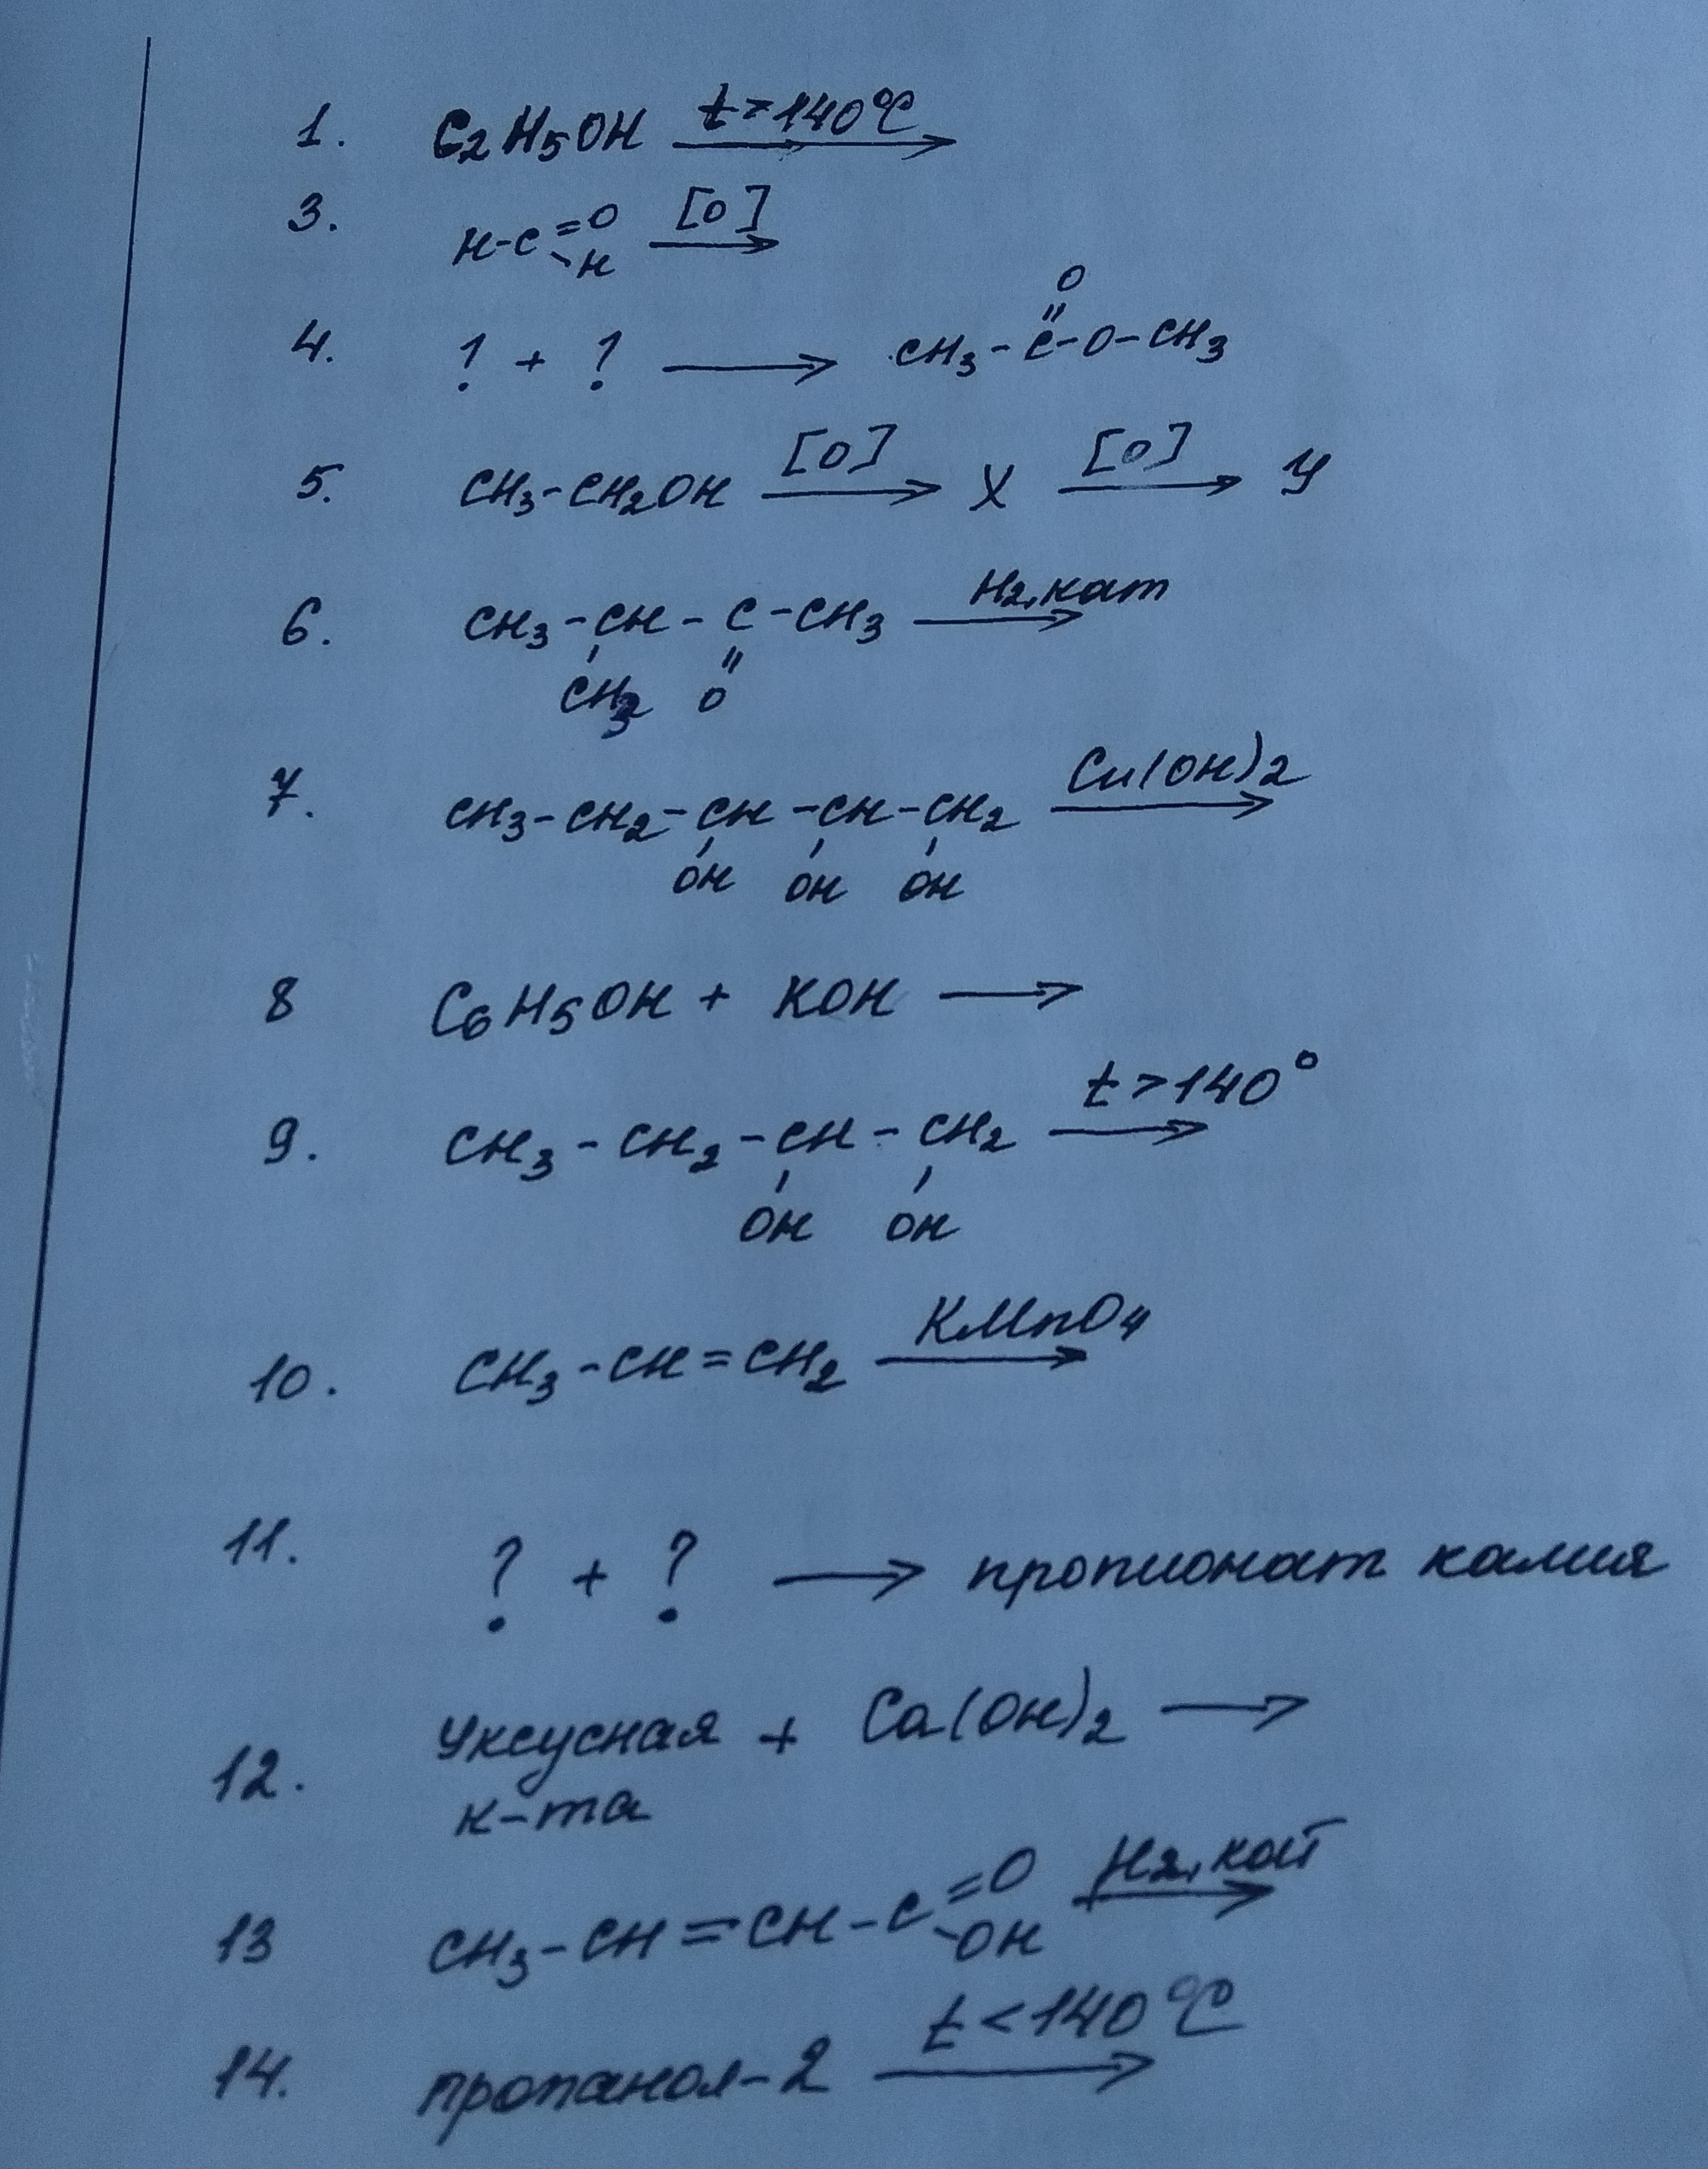 1. C2H5OH t>140°C →
3. H-C=O -H [O] →
4. ? + ? → CH3-C(=O)-O-CH3
5. CH3-CH2OH [O] → X [O] → У
6. CH3-CH-C-CH3 H2,кат →
CH3 O
7. CH3-CH2-CH-CH-CH2 Cu(OH)2 →
OH OH OH
8 C6H5OH + KOH →
9. CH3-CH2-CH-CH2 t>140° →
OH OH
10. CH3-CH=CH2 KMnO4 →
11. ? + ? → пропионат калия
12. Уксусная + Ca(OH)2 →
к-та
13 CH3-CH=CH-C=O -OH H2,кат →
14. пропанол-2 t<140°C →